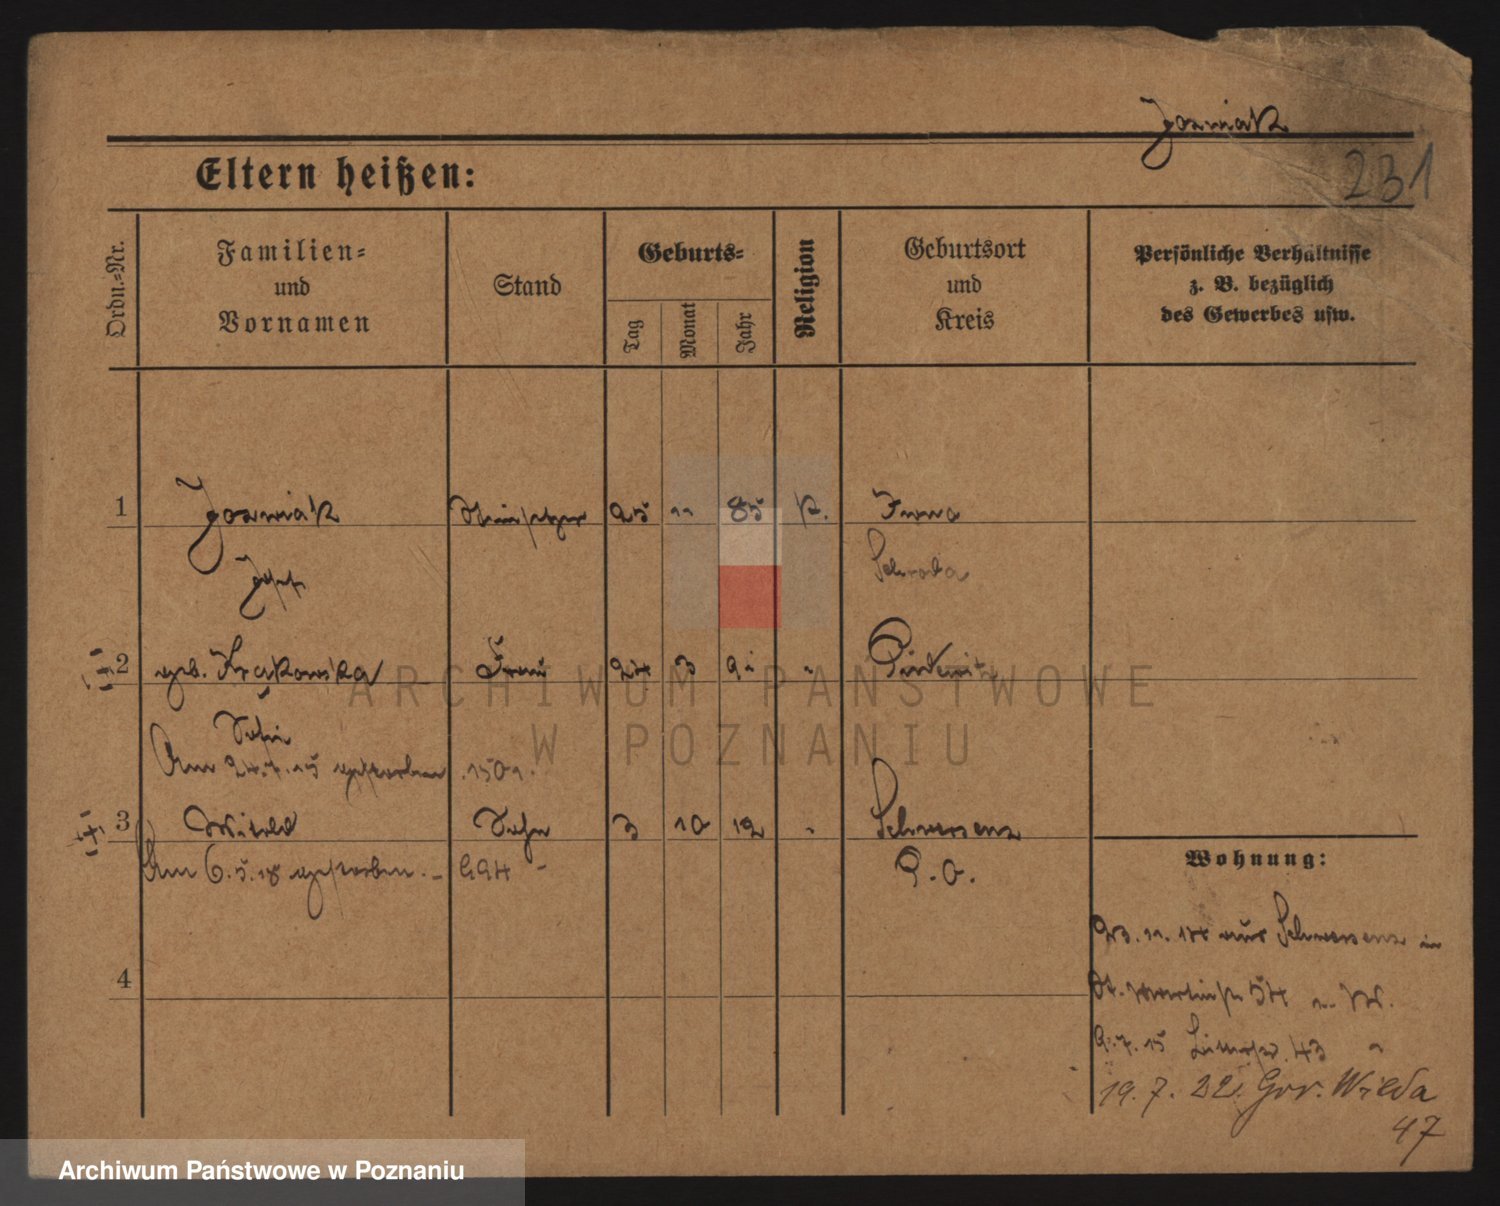 Jozwiak
231
Eltern heißen:
Ordn.-Nr.
Familien-
und
Vornamen
Stand
Geburts-
Tag
Monat
Jahr
Religion
Geburtsort
und
Kreis
Persönliche Verhältnisse
z. B. bezüglich
des Gewerbes usw.
1 Jozwiak 25 11 85 K.
Josef Schroda
2 geb. Krąkowska Frau 24 3
Sofie
Am 24.7.15 gestorben 1501.
3 Witold Sohn 3 10 12 Schwersenz
Am 6.5.18 gestorben. 994 P. O.
Wohnung:
23.11.14 aus Schwersenz in
St. Martinstr 54
7.15 43
4
19.7.22. Gór. Wilda
47
ARCHIWUM PAŃSTWOWE
W POZNANIU
Archiwum Państwowe w Poznaniu